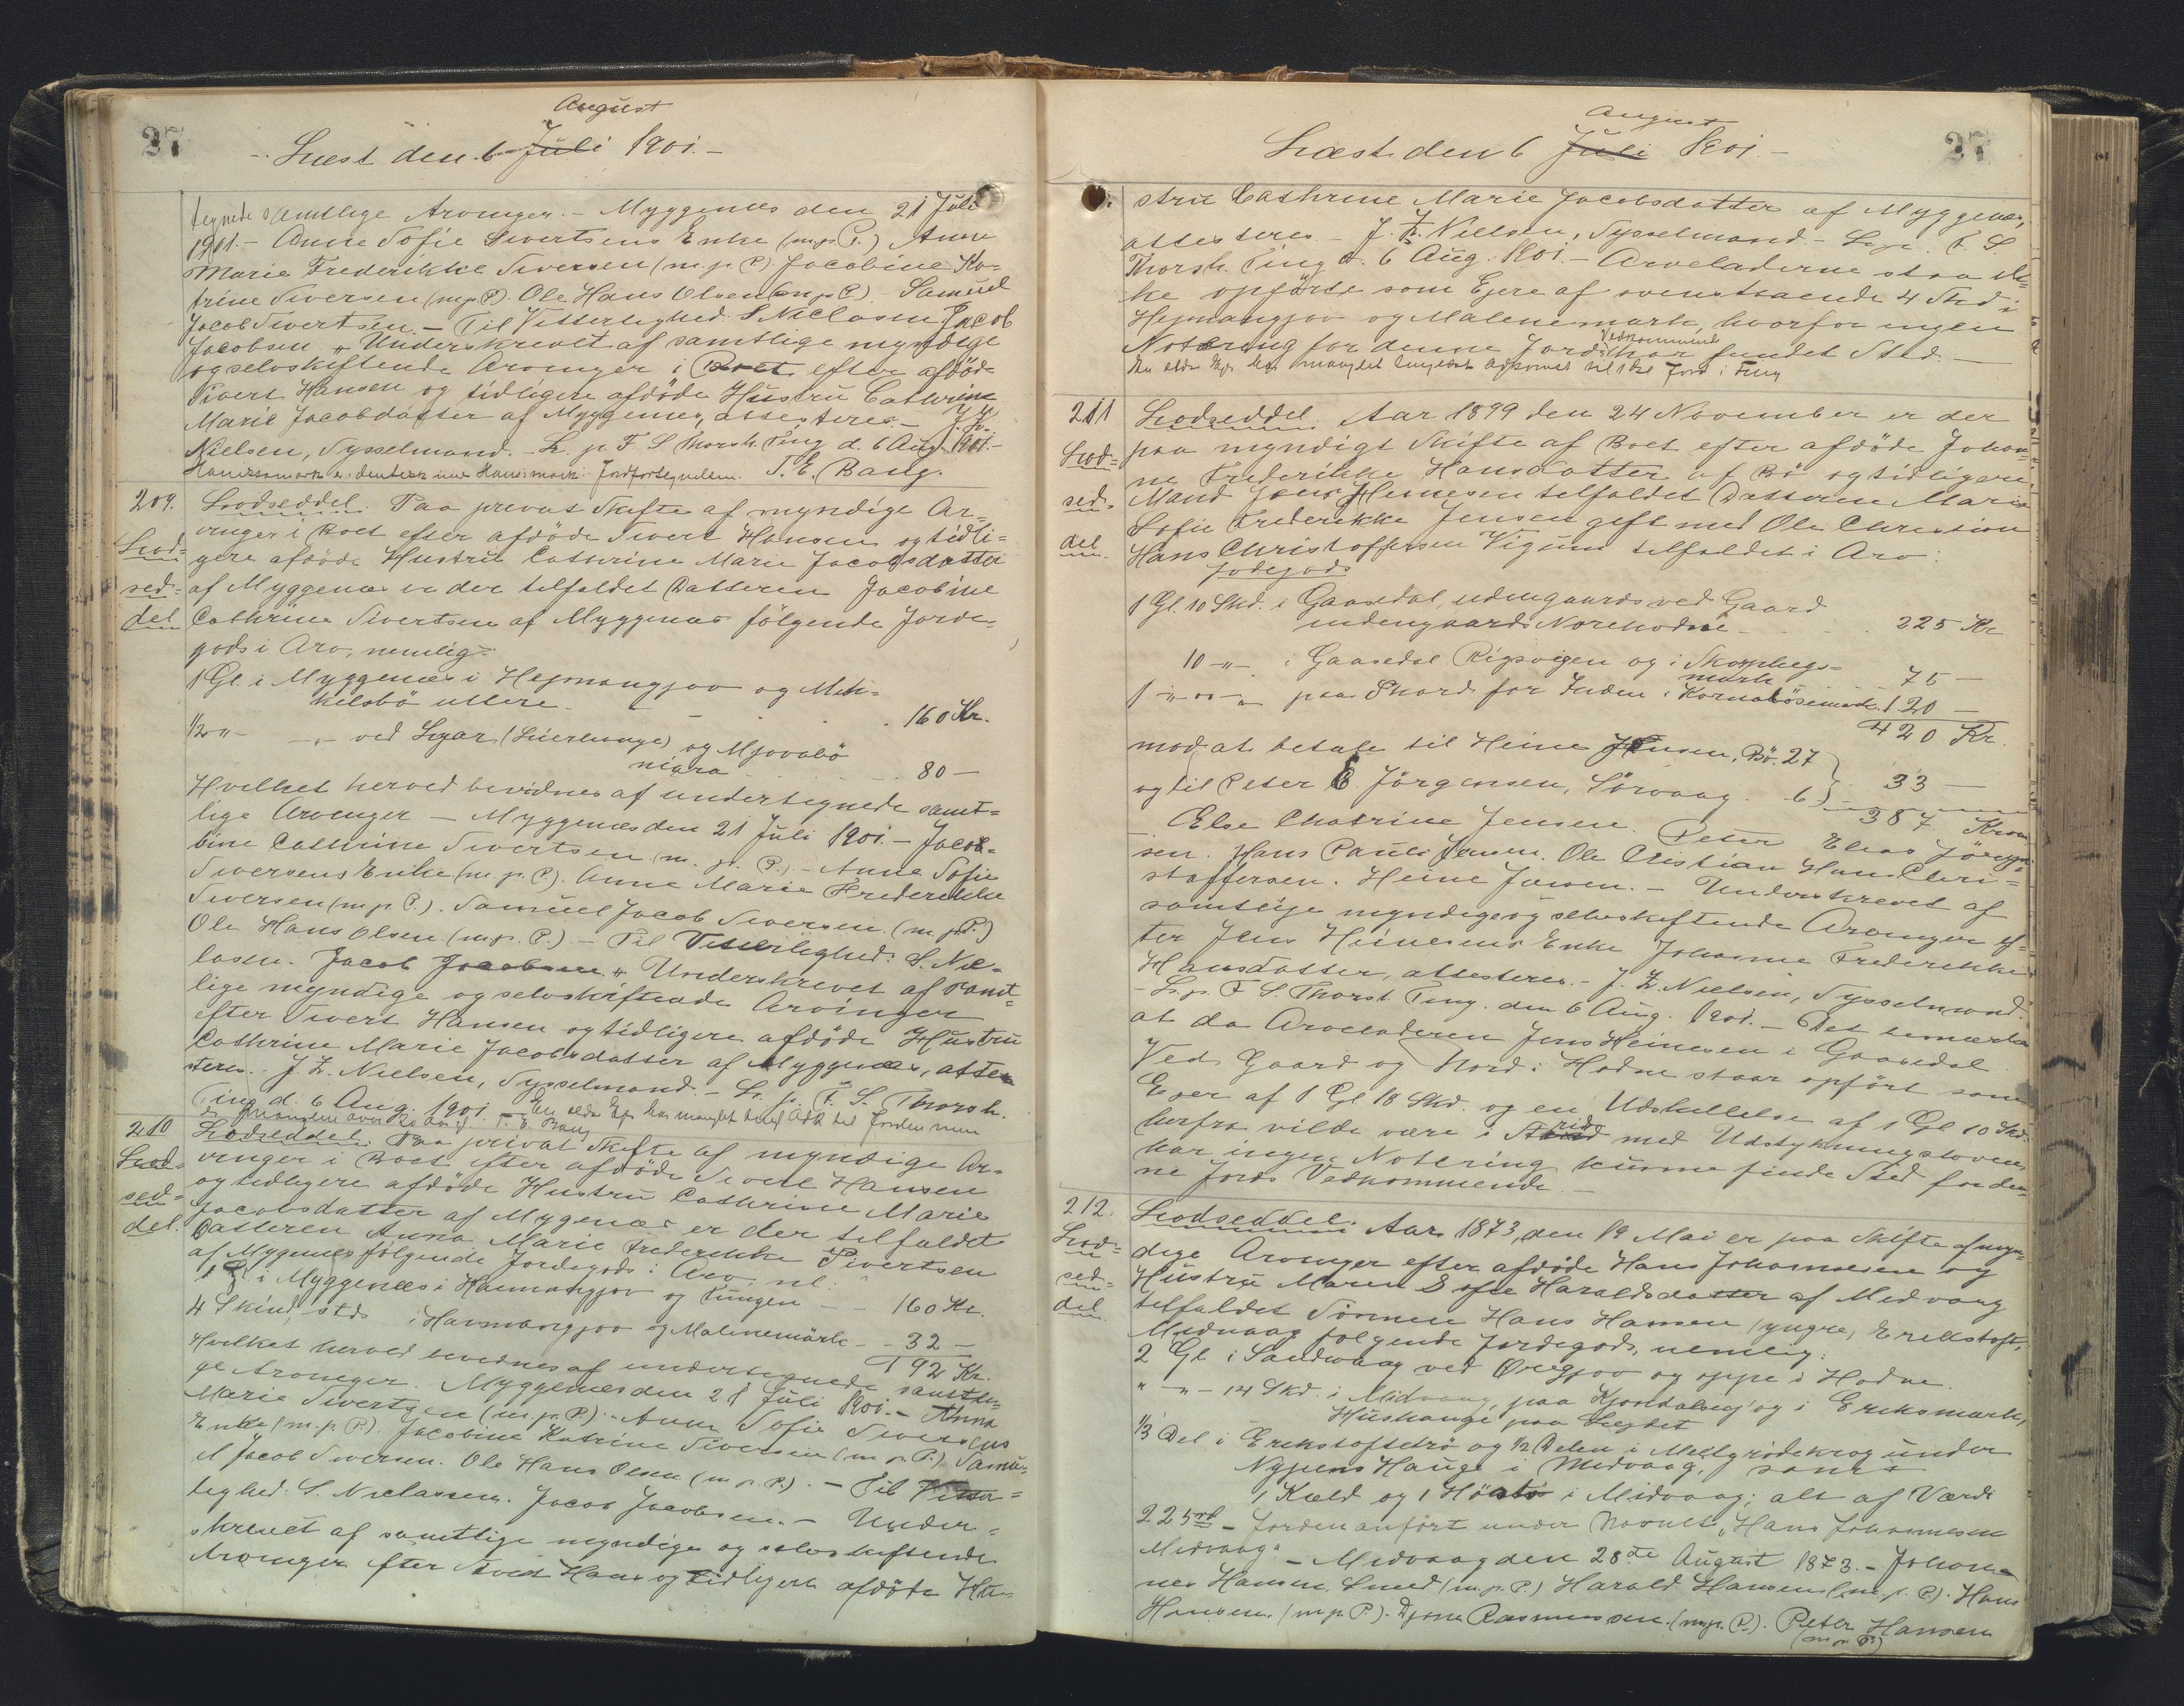 27
August
Læst den 6 Juli 1901.-
tegnede samtlige Arvinger. - Myggenæs den 21 Juli
1901. - Anne Sofie Sivertsens Enke (m.p.P.) Anne
Marie Frederikke Siversen (m.p.P.) Jacobine Ka-
trine Siversen (m.p.P.) Ole Hans Olsen (m.p.P.) - Samuel
Jacob Sivertsen. - Til Vitterlighed. S. Niclasen Jacob
Jacobsen „ Underskrevet af samtlige myndige
og selvskiftende Arvinger i Boet efter afdöde
Sivert Hansen og tidligere afdöde Hustru Cathrine
Marie Jacobsdatter af Myggenæs, attesteres. - J. Z.
Nielsen, Sysselmand. - L. p. F. S. Thorsh. Ting d. 6 Aug. 1901.-
Jordfortegnelsen. T. E. Bang.
209.
Lod=
sed=
del
Lodseddel. Paa privat Skifte af myndige Ar-
vinger i Boet efter afdöde Sivert Hansen og tidli=
gere afdöde Hustru Cathrine Marie Jacobsdatter
af Myggenæs er der tilfaldet Datteren Jacobine
Cathrine Sivertsen af Myggenæs fölgende Jorde-
gods i Arv, nemlig:
1 Gl. i Myggenæs i Hejmangjov og Mik-
kelsbö uttere - - . 160 Kr.
1/2 „ - „ - ved Lyar (Lüerhauge) og Mjovabö
niara . . . . 80 -
Hvilket herved bevidnes af undertegnede samt=
lige Arvinger - Myggenæs den 21 Juli 1901. - Jaco=
bine Cathrine Sivertsen (m. p. P.) - Anne Sofie
Siversens Enke (m.p.P). Anne Marie Frederikke
Siversen (m.p.P.). Samuel Jacob Siversen (m.p.P.)
Ole Hans Olsen (m.p.P.) - Til Vitterlighed: S. Nic-
lasen. Jacob Jacobsen „ Underskrevet af samt=
lige myndige og selvskiftende Arvinger
efter Sivert Hansen og tidligere afdöde Hustru
Cathrine Marie Jacobsdatter af Myggenæs, attes
teres. - J. Z. Nielsen, Sysselmand. - L. p. F. S. Thorsh.
Ting d. 6 Aug. 1901. - En ældre Ejer har manglet tingl. Adk til Jorden men
T. E. Bang
210
Lod=
sed=
del.
Lodseddel. Paa privat Skifte af myndige Ar-
vinger i Boet efter afdöde Sivert Hansen
og tidligere afdöde Hustru Cathrine Marie
Jacobsdatter af Mygenæs er der tilfaldet
Datteren Anna Marie Frederikke Sivertsen
af Mygenæs fölgende Jordegods i Arv, nl.:
1 Gl i Myggenæs i Hammangjov og Tungen - - 160 Kr.
4 Skind, stds i Hammangjov og Malenemark - - 32 -
192 Kr.
Hvilket herved bevidnes af undertegnede samtli-
ge Arvinger. Myggenæs den 21 Juli 1901. - Anna
Marie Sivertsen (m.p.P.) - Anne Sofie Siversens
Enke (m.p.P.). Jacobine Katrine Siversen (m.p.P.) Samu-
el Jacob Siversen. Ole Hans Olsen (m.p.P.). - Til Vitter=
lighed: S. Niclassen. Jacob Jacobsen. - Under=
skrevet af samtlige myndige og selvskiftende
Arvinger efter Sivert Hans og tidligere afdöde Hu-
27
August
Læst den 6 Juli 1901.-
stru Cathrine Marie Jacobsdatter af Myggenæs,
attesteres - J. Z. Nielsen, Sysselmand. - L. p. F. S.
Thorsh. Ting d. 6 Aug. 1901. - Arveladerne staa ik-
ke opförte som Ejere af ovenstaaende 4 Skd i
Hejmangjov og Malenemark, hvorfor ingen
Notering for denne Jords Vedkommende har fundet Sted. -
211
Lod=
sed=
del
Lodseddel. Aar 1899 den 24 November er der
paa myndigt Skifte af Boet efter afdöde Johan-
ne Frederikke Hansdatter af Bö og tidligere
Mand Jens Heinesen tilfaldet Datteren Marie
Sofie Frederikke Jensen gift med Ole Christian
Hans Christoffersen Vigum tilfaldet i Arv:
Jodegods
1 Gl. 10 Skd. i Gaasedal, udengaards ved Gaard
indengaards Norehodne - . . . 225 Kr
10 - „ - i Gaasedal Rigsvigen og i Skorphegs-
mark . 75 -
1 - „ - „ - paa Skard for Inden i Kornabösemark. 120 -
420 Kr.
mod at betale til Heine Jensen, Bö. 27
og til Peter E. Jörgensen, Sörvaag . 6 } 33 -
387 Kron
Else Chatrine Jensen. Peter Elias Jörgen-
sen. Hans Pauli Jensen. Ole Christian Hans Chri-
stoffersen. Heine Jensen. - Underskrevet af
samtlige myndige og selvskiftende Arvinger ef-
ter Jens Heinesens Enke Johanne Frederikke
Hansdatter, attesteres. - J. Z. Nielsen, Sysselmand.
- L. p. F. S. Thorsh. Ting. den 6 Aug. 1901. - Det bemærkes
at da Arveladeren Jens Heinesen i Gaasedal
Ved Gaard og Nord i Hodne staar opfört som
Ejer af 1 Gl 18 Skd. og en Udskillelse af 1 Gl 10 Skd.
herfra vilde være i Strid med Udstykningsloven
har ingen Notering kunne finde Sted for den-
ne Jords Vedkommende. -
212.
Lod=
sed=
del
Lodseddel. Aar 1873, den 19 Mai er paa Skifte af myn-
dige Arvinger efter afdöde Hans Johannesen og
Hustru Maren Sofie Haraldsdatter af Midvaag
tilfaldet Sönnen Hans Hansen (yngre) Erikstoft,
Midvaag fölgende Jordegods, nemlig:
2 Gl i Sandevaag ved Öregjov og oppe i Hodne.
„ - „ - 14 Skd. i Midvaag, paa Kjorndalseg og i Eriksmark,
Hushauge paa Legdet
1/3 Del i Erikstoftetrö og 1/2 Delen i Mellgrödekrog under
Nypens Hauge i Midvaag, samt
1 Kæld og 1 Hösto i Midvaag; alt af Værdi
225 rd - Jorden anfört under Navnet „Hans Johannesen
Midvaag". - Midvaag den 28de August 1873. - Johan-
nes Hansen Smed (m.p.P.) Harald Hansen (m.p.P.). Hans
Hansen (m.p.P.). Djona Rasmussen. (m.p.P.). Peter Hansen
(m.p.P.)